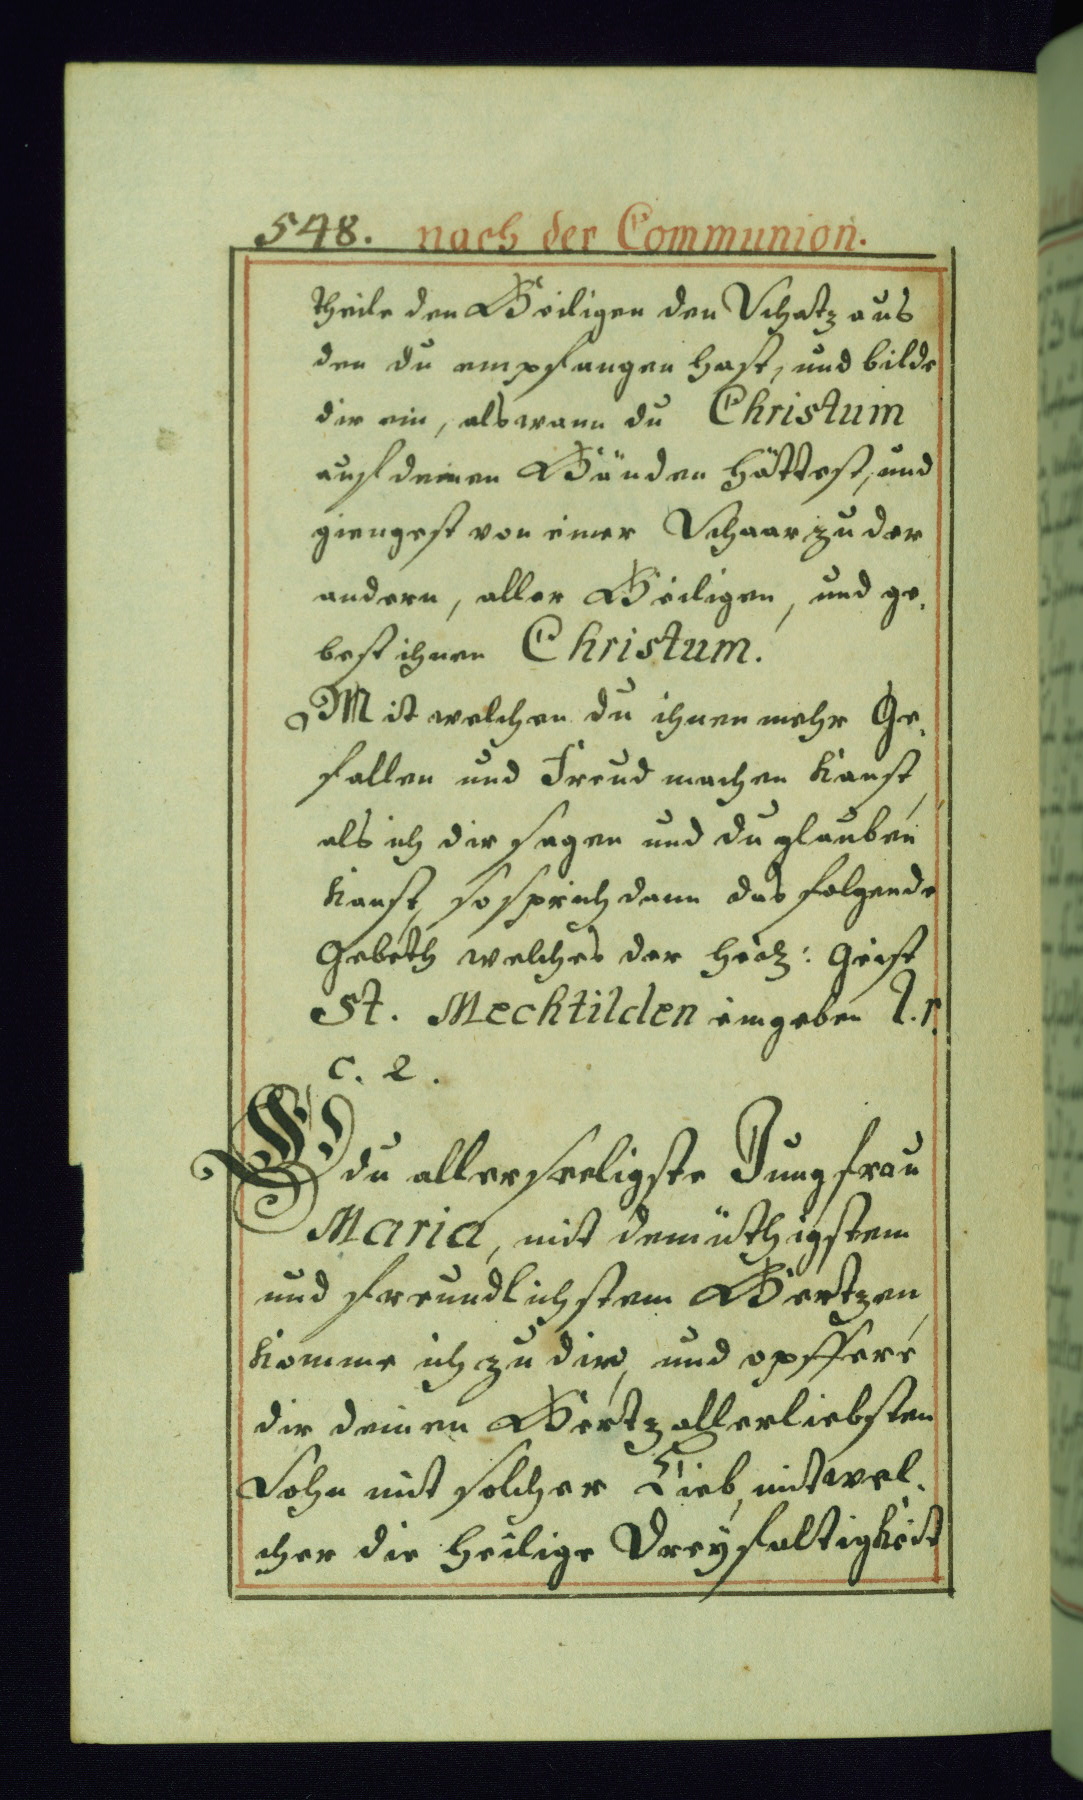 548. nach der Communion.
theile den Heiligen den Schatz aus
den du empfangen hast, und bilde
dir ein, als wann du Christum
auf deinen Händen hättest, und
giengest von einer Schaar zu der
andern, aller Heiligen, und ge,
best ihnen Christum.
Mit welchen du ihnen mehr Ge,
fallen und Freud machen kanst,
als ich dir sagen und du glauben
kanst, so sprich dann das folgende
Gebeth welches der heil: Geist
St. Mechtilden eingeben l. 1.
c. 2.
O du allerseeligste Jungfrau
Maria, mit demüthigstem
und freundlichstem Hertzen,
komme ich zu dir, und opffere
dir deinen Hertzallerliebsten
Sohn mit solcher Lieb, mit wel,
cher die Heilige Dreyfaltigkeit